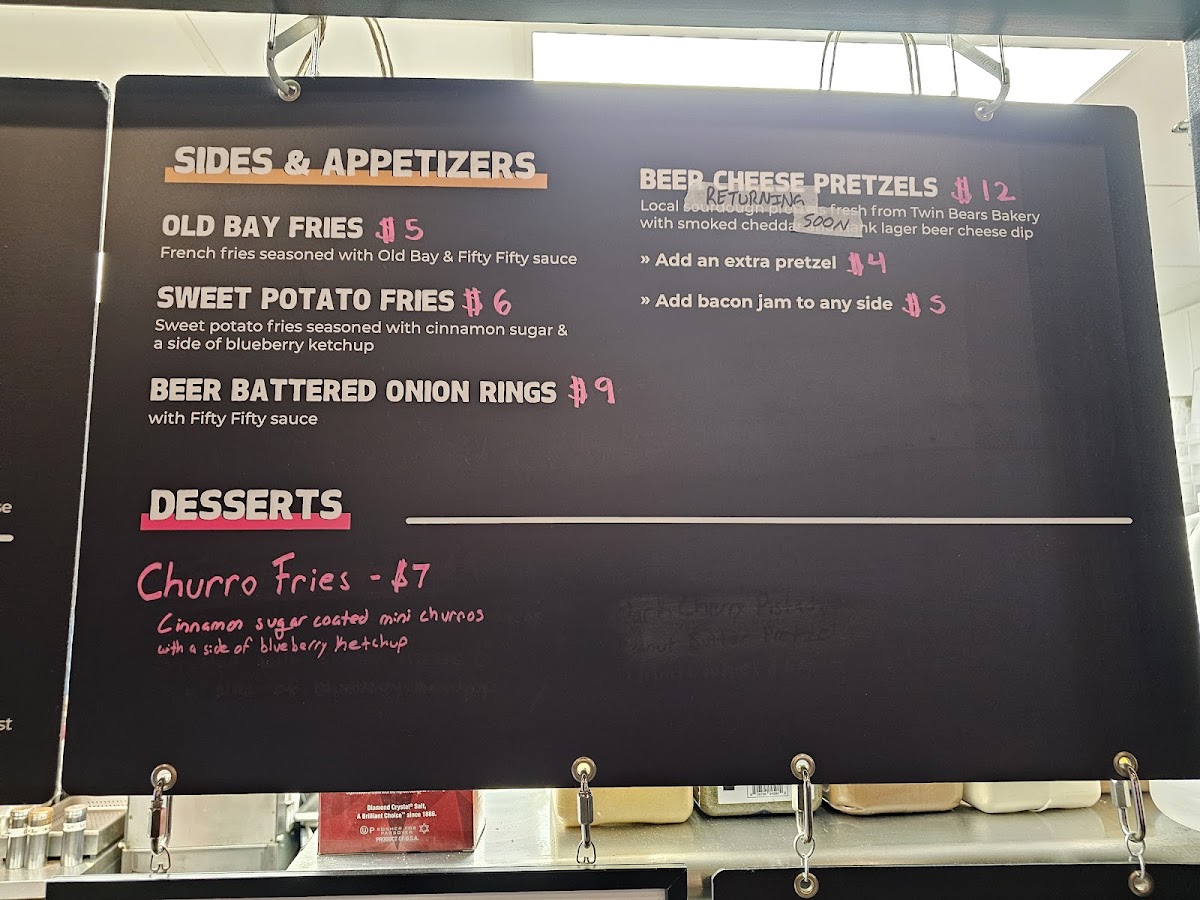 SIDES & APPETIZERS
OLD BAY FRIES $5
French fries seasoned with Old Bay & Fifty Fifty sauce
SWEET POTATO FRIES $6
Sweet potato fries seasoned with cinnamon sugar &
a side of blueberry ketchup
BEER BATTERED ONION RINGS $9
with Fifty Fifty sauce
BEER CHEESE PRETZELS $12
RETURNING
SOON
Local sourdough fresh from Twin Bears Bakery
with smoked lager beer cheese dip
» Add an extra pretzel $4
» Add bacon jam to any side $5
DESSERTS
Churro Fries - $7
Cinnamon sugar coated mini churros
with a side of blueberry Ketchup
se
st
Diamond Crystal® Salt,
A Brilliant Choice™ since 1886.
U P KOSHER FOR
PASSOVER
PRODUCT OF U.S.A.